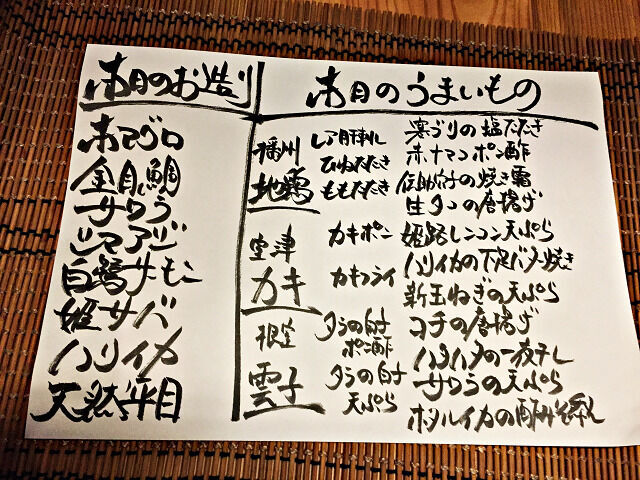 本日のお造り
本マグロ
金目鯛
サワラ
シマアジ
白鷺サーモン
姫サバ
ハリイカ
天然平目
本日のうまいもの
播州
地鶏
レア月刺し
ひねたたき
ももたたき
室津
カキ
カキポン
カキフライ
根室
雲子
タラの白子
ポン酢
タラの白子
天ぷら
寒ブリの塩たたき
赤ナマコポン酢
伝助穴子の焼き霜
生タコの唐揚げ
姫路レンコン天ぷら
ハリイカの下足バター焼き
新玉ねぎの天ぷら
コチの唐揚げ
ハタハタの一夜干し
サワラの天ぷら
ホタルイカの酢みそ添え